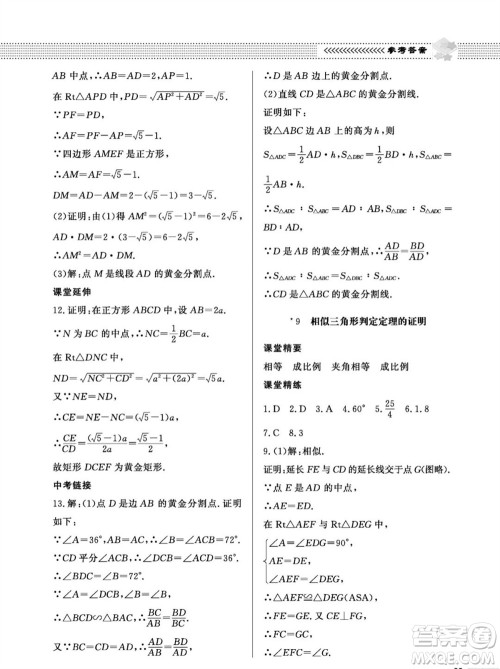 参考答案
AB 中点，∴AP=1.
在 Rt△APD 中，PD=√(AP²+AD²)=√5.
∵PF=PD=√5.
∴AF=√5−1.
∵四边形 AMEF 是正方形，
∴AM=AF=√5−1，
DM=2−AM=3−√5.
(2)证明：由(1)得 AM²=(√5−1)²=6−2√5，
AD·DM=2(3−√5)=6−2√5，
∴AM²=AD·DM.
(3)解：点 M 是线段 AD 的黄金分割点.
课堂延伸
12.证明：在正方形 ABCD 中，设 AB=2a，
∵N 为 BC 的中点，∴NC=1/2 BC=a.
在 Rt△DNC 中，
ND=√(NC²+CD²)=√(a²+(2a)²)=√5a.
又∵NE=ND，
∴CE=NE−NC=(√5−1)a.
∴CE/CD=(√5−1)a/2a=(√5−1)/2，
故矩形 DCEF 为黄金矩形.
中考链接
13.解：(1)点 D 是边 AB 的黄金分割点.证明
如下：
∵∠A=36°，AB=AC，∴∠B=∠ACB=72°.
∵CD 平分∠ACB，∴∠DCB=36°.
∴∠BDC=∠B=72°.
∵∠A=∠BCD=36°，
∴∠A=∠ACD=36°.
∴BC=CD，CD=AD.∴BC=AD.
∴△BDC∽△BCA.∴BC/AB=BD/BC.
又∵BC=AD，∴AD/AB=BD/AD.
∴D 是 AB 边上的黄金分割点.
(2)直线 CD 是△ABC 的黄金分割线.
证明如下：
设△ABC 的边 AB 上的高为 h，则
S△ADC=1/2 AD·h，S△DBC=1/2 DB·h，S△ABC=
1/2 AB·h.
∴S△ADC∶S△ABC=AD∶AB，S△DBC∶S△ADC=
BD∶AD.
∵D 是 AB 的黄金分割点，∴AD/AB=BD/AD.
*9 相似三角形判定定理的证明
课堂精要
相等 成比例 夹角相等 成比例
课堂精练
1.D 2.B 3.A 4.60° 5.25/4 6.1.8
7.C 8.3
9.(1)解：相似.
证明：延长 FE 与 CD 的延长线交于点 G(图略).
∵点 E 是 AD 的中点，
∴AE=DE.
∵
∠A=∠EDG=90°，
AE=DE，
∠AEF=∠DEG，
∴△AEF≌△DEG(ASA).
∴FE=GE.又 CE⊥FG，
∴CF=CG.∴∠CFG=∠G.